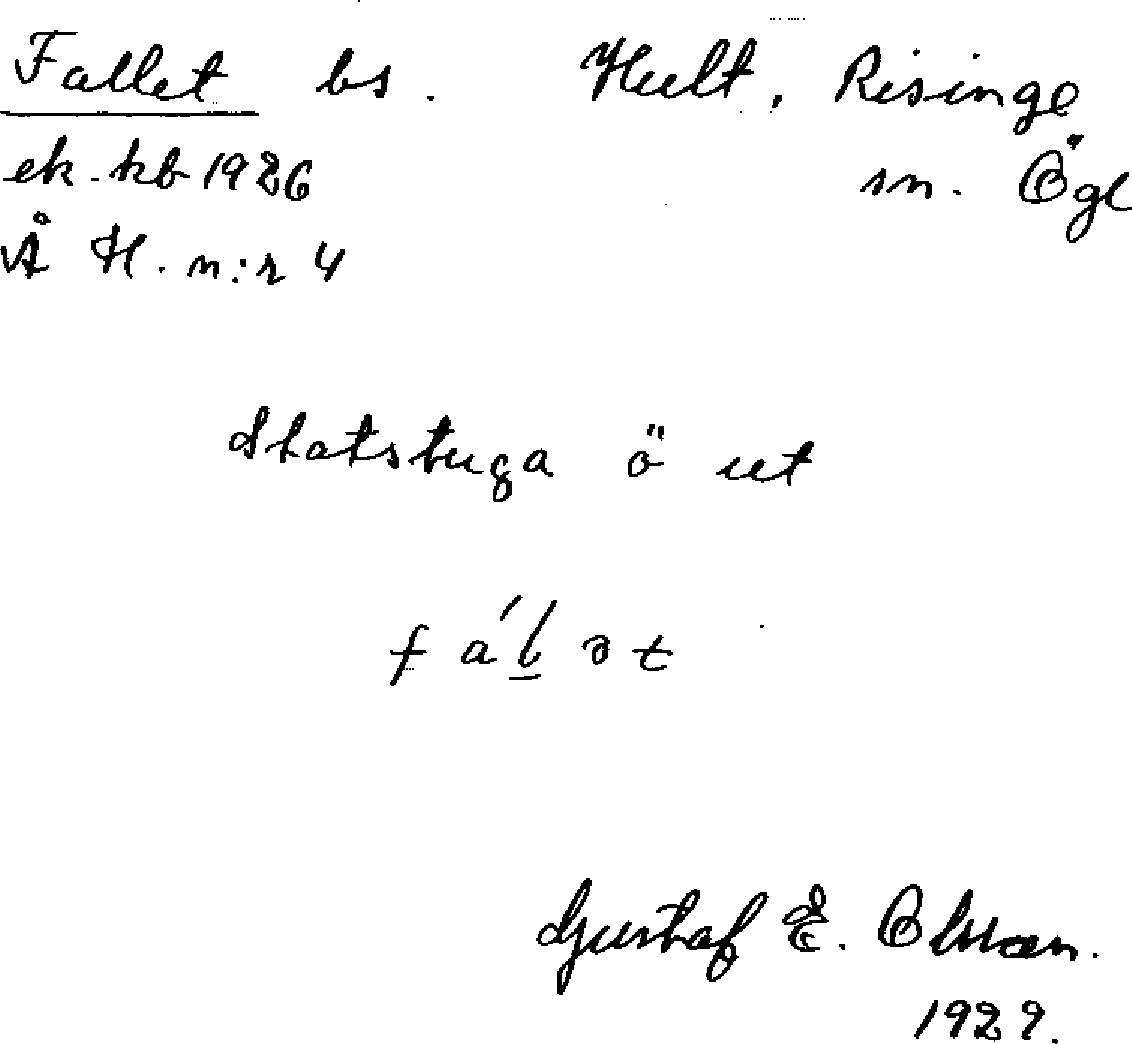 Fallet bs. Hult, Risinge
ek. kb 1926 sn. Ögl
Å H. n:r 4
Statstuga ö ut
fá́l̲ət
Gustaf E. Olsson.
1929.